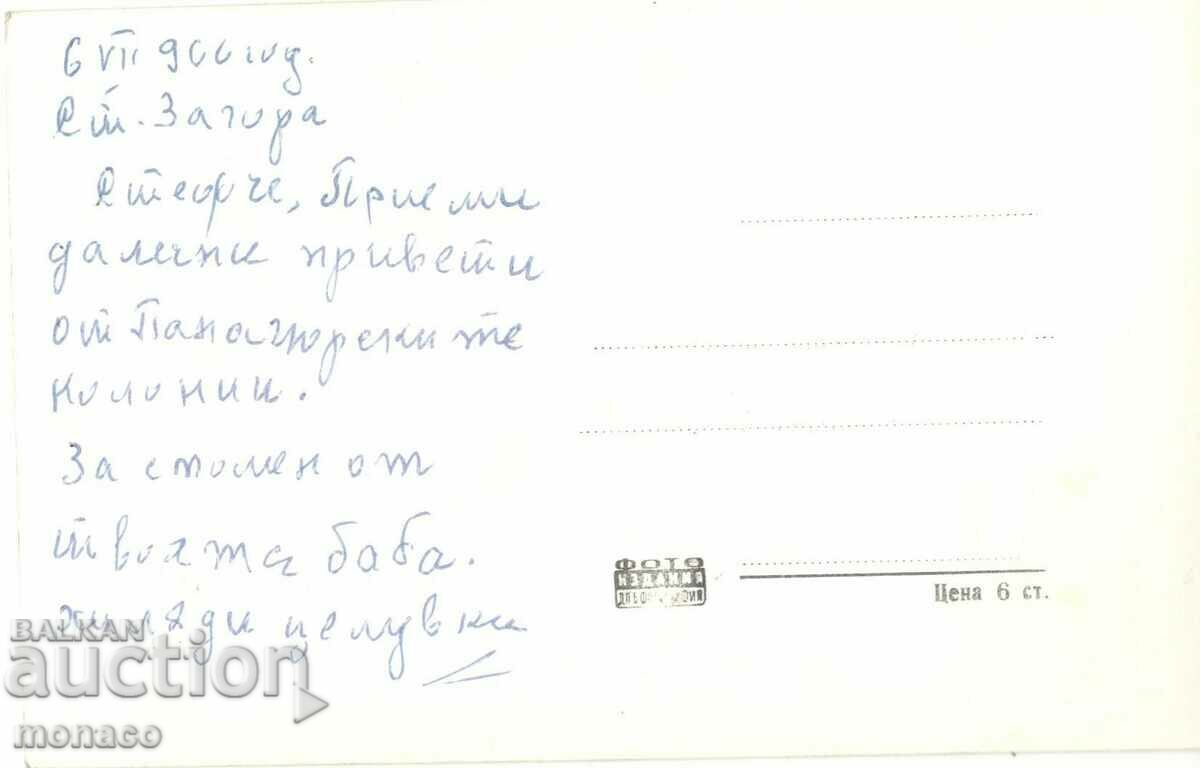 6 VII 900 год.
Ст. Загора
Стефче, Приеми
далечни привети
от Панагюрските
колонии.
За спомен от
твоята баба.
хиляди целувки
ФОТО
ИЗДАНИЕ
Цена 6 ст.
BALKAN
auction
monaco